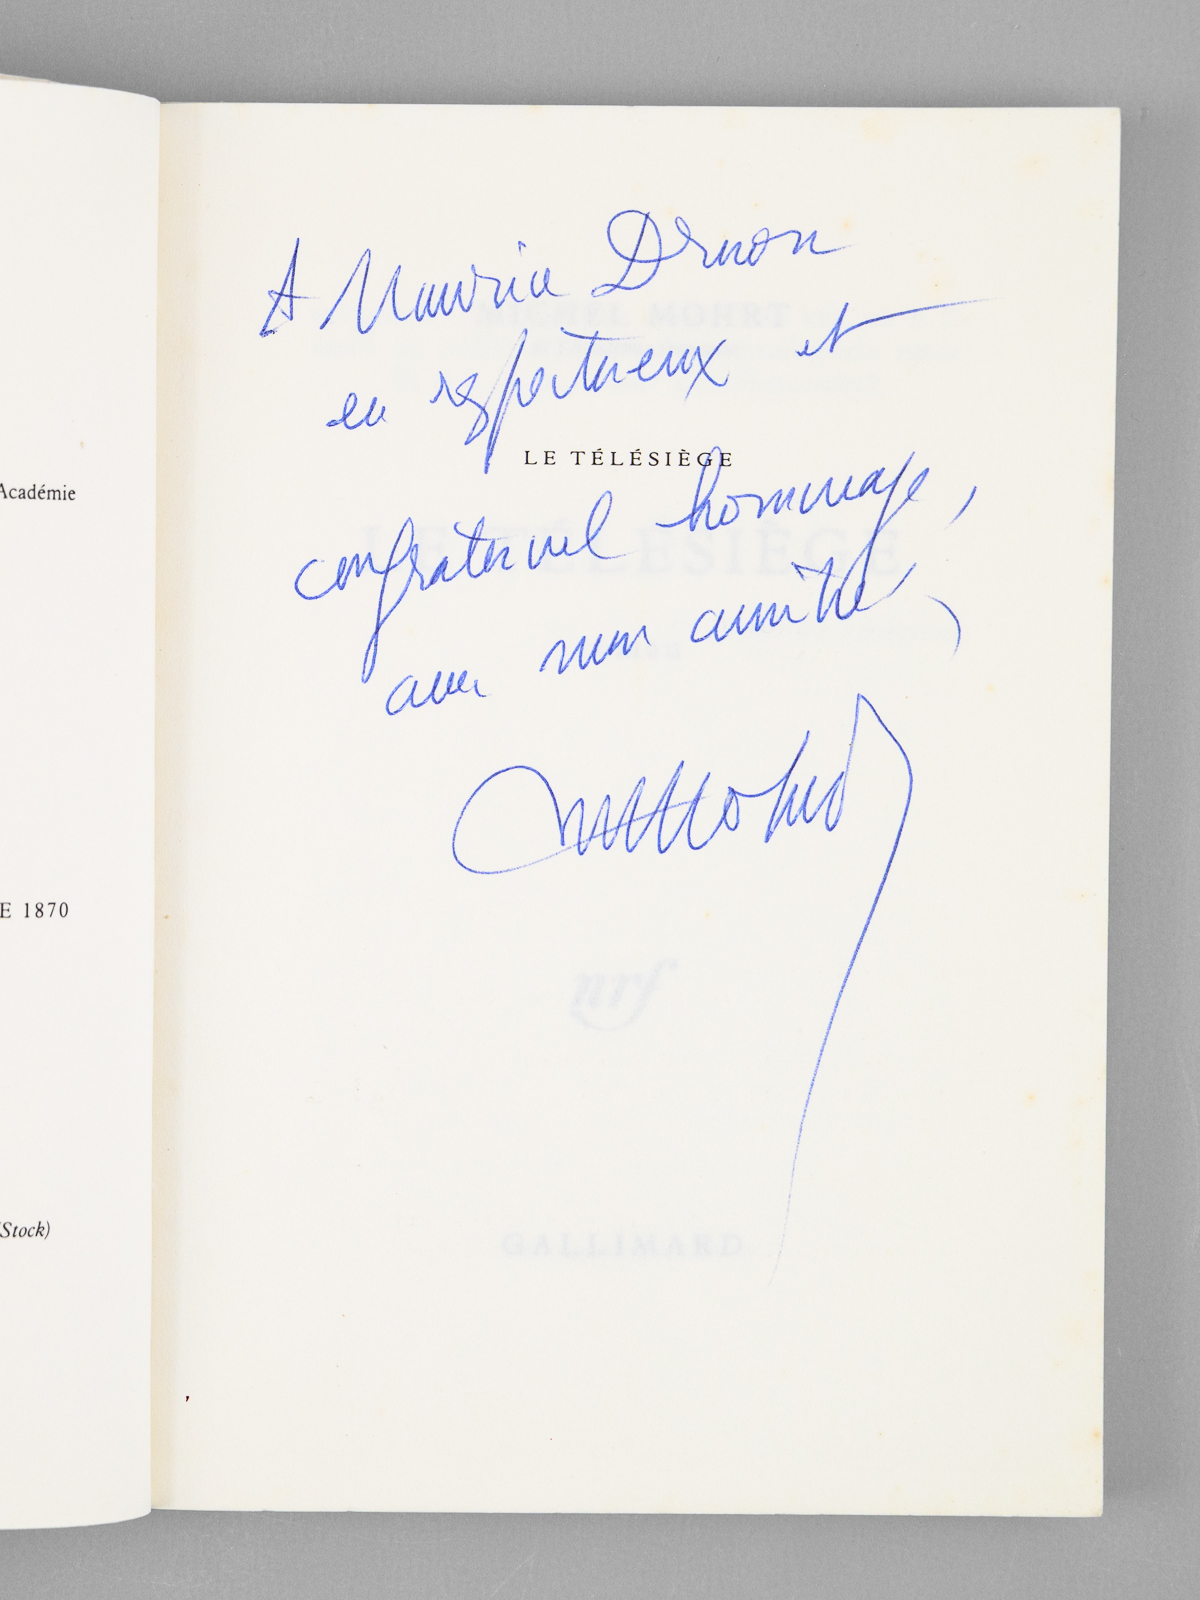 A Maurice Druon
en respectueux et
LE TÉLÉSIÈGE
confraternel hommage,
avec mon amitié,
M Mohrt
MICHEL MOHRT
LE TÉLÉSIÈGE
nrf
GALLIMARD
Académie
E 1870
(Stock)